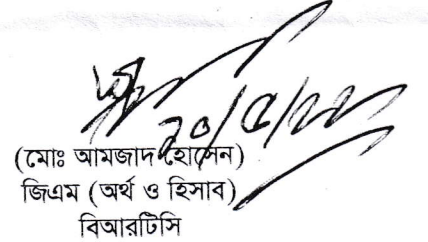 ২০/৫/২২
(মোঃ আমজাদ হোসেন)
জিএম (অর্থ ও হিসাব)
বিআরটিসি